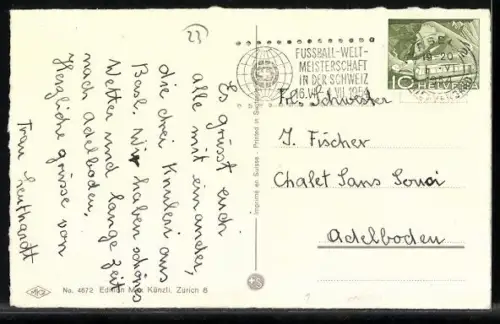 23
Es grüsst euch
alle mit einander,
die drei Knuleri aus
Basel. Wir haben schönes
Wetter und lange Zeit
nach Adelboden,
Herzliche grüsse von
Frau Leuthardt
FUSSBALL-WELT-
MEISTERSCHAFT
IN DER SCHWEIZ
16.VI.-4.VII.1954
19-20
10 HELVETIA
Frl. Schwester
J. Fischer
Chalet Sans Souci
Adelboden
Imprimé en Suisse - Printed in
No. 4672 Edition Max Künzli, Zürich 6